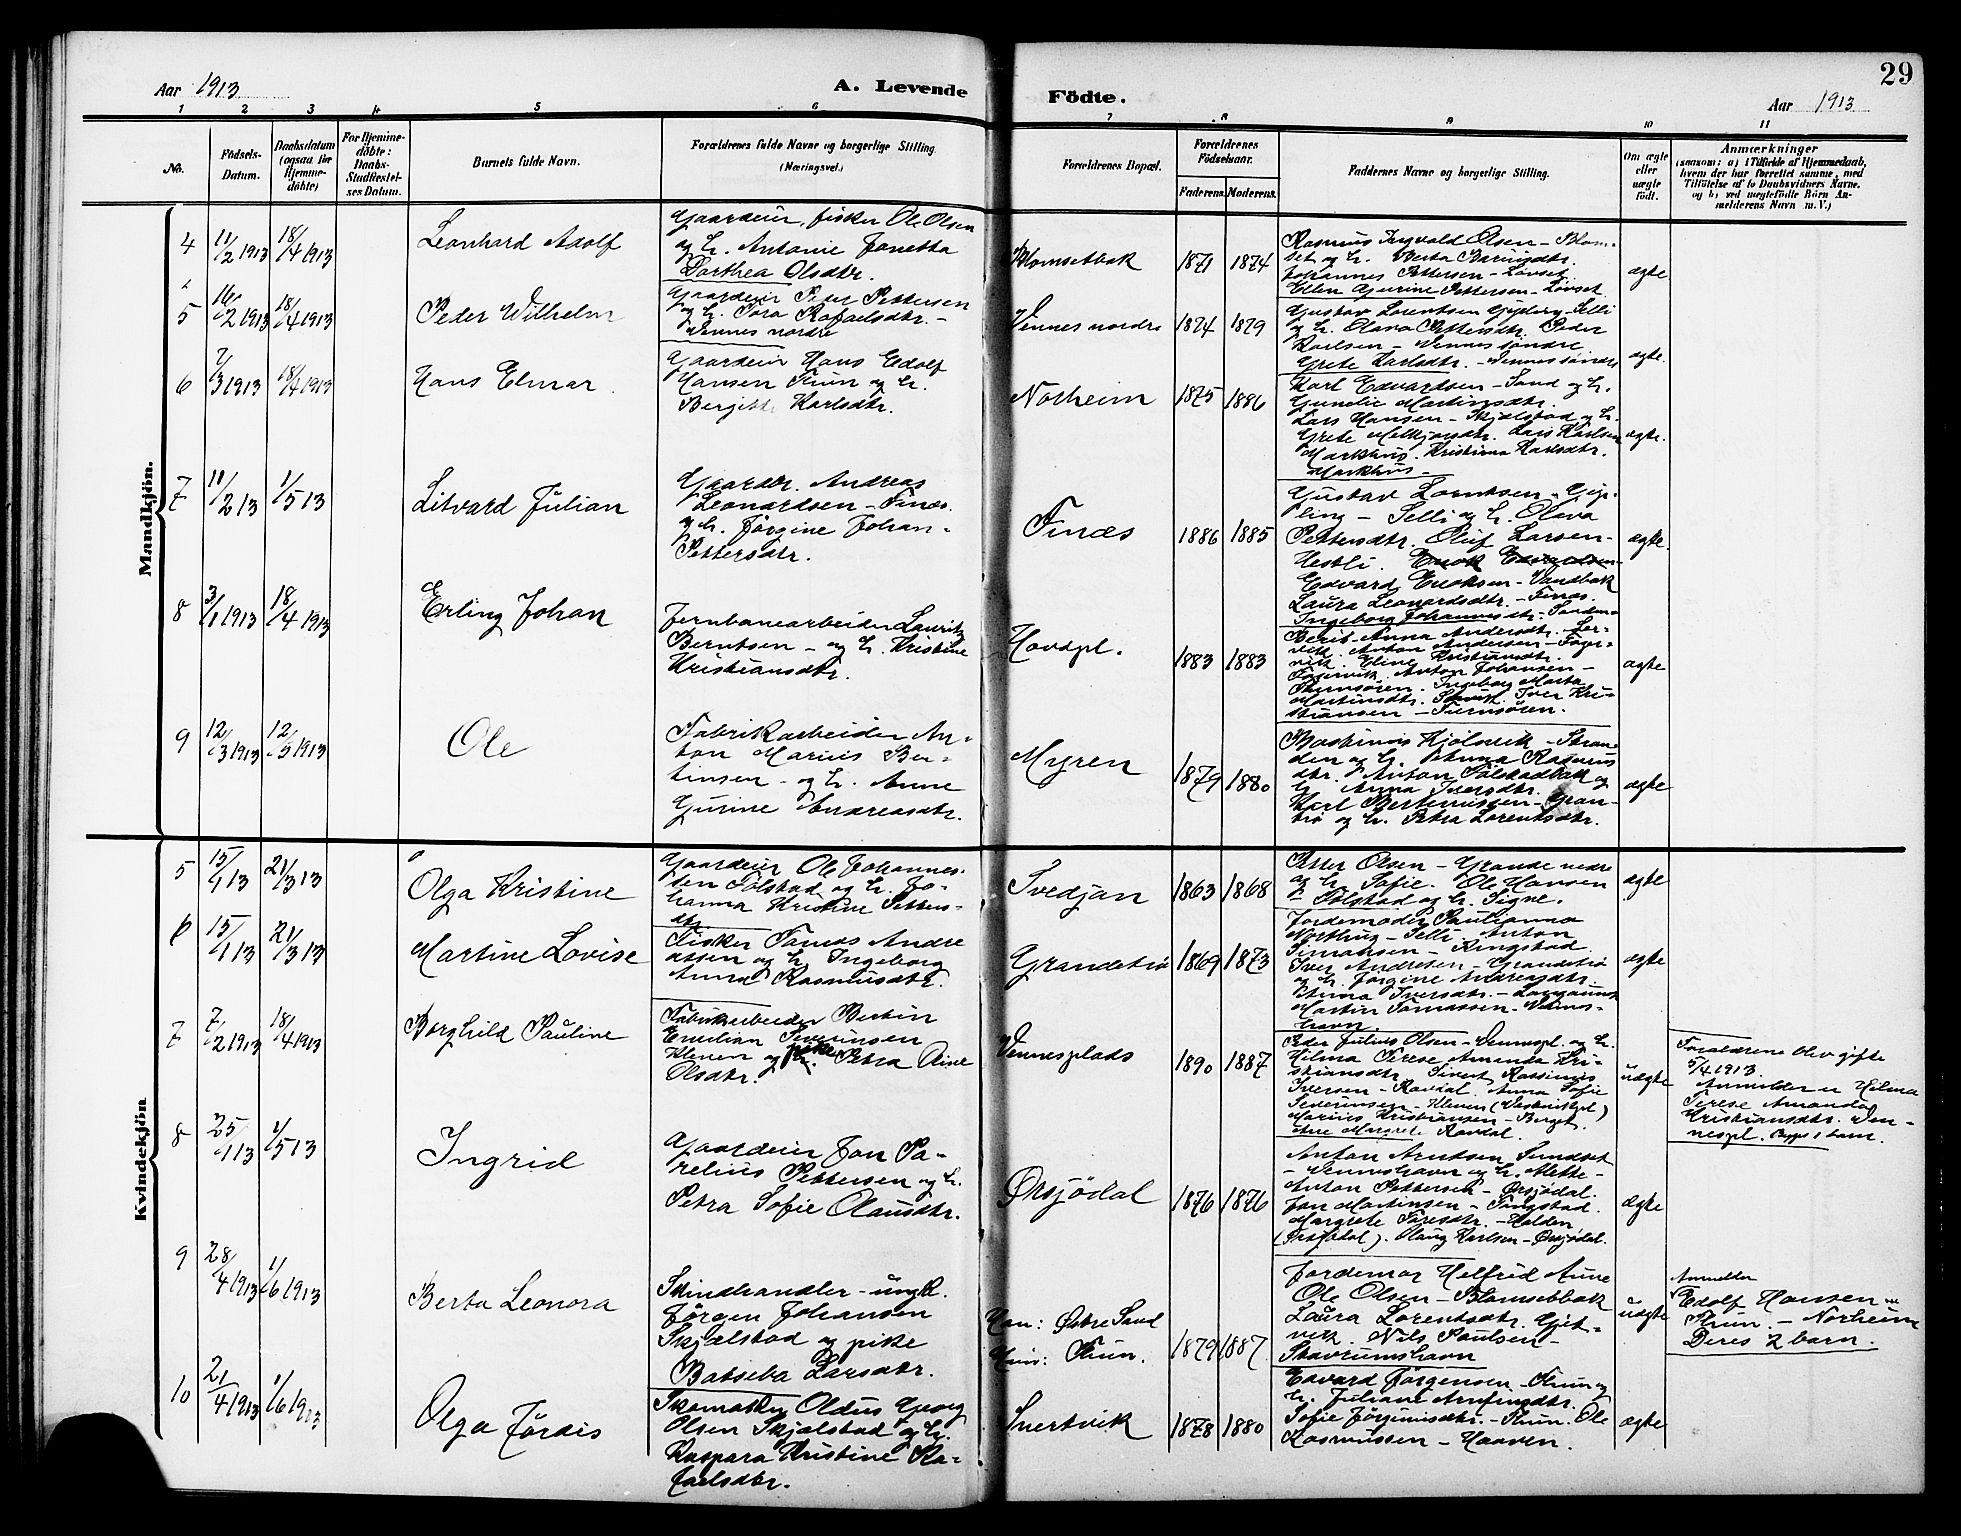 29
Aar 1913
A. Levende
Födte.
Aar 1913
1 2 3 4 5 6 7 8 9 10 11
No.
Födsels-
Datum.
Daabsdatum
(ogsaa for
Hjemme-
döbte)
For Hjemme-
döbte:
Daabs-
Stadfæstel-
ses Datum.
Barnets fulde Navn.
Forældrenes fulde Navne og borgerlige Stilling
(Næringsvei.)
Forældrenes Bopæl.
Forældrenes
Födselsaar.
Faderens. Moderens.
Faddernes Navne og borgerlige Stilling.
Om ægte
eller
uægte
født.
Anmærkninger
(saasom: a) i Tilfælde af Hjemmedaab,
hvem der har forrettet samme, med
Tilföielse af to Daabsvidners Navne.
og b) ved uægtefödte Börn An-
melderens Navn m. V.)
Mandkjön.
4
11/2 1913
18/4 1913
Leonhard Adolf
Gaardeier, fisker Ole Olsen
og h. Antonie Jonetta
Dorthea Olsdtr.
Blomsetbak
1871 1874
Rasmus Ingvald Olsen - Blom-
set og h. Berta
Johannes Pettersen - Løvset
Ellen Gjurine Pettersen - Løvset
ægte
5
16/2 1913
18/4 1913
Peder Wilhelm
Gaardeier Peter Pettersen
og h. Tora Rafaelsdtr. -
Vennes nordre
Vennes nordre
1874 1879
Gustav Lorentsen - Selli
og h. Olava Pettersdtr. Peder
Karlsen - Vennes søndre
Grete Karlsdtr. - Vennes søndre
ægte.
6
7/3 1913
18/4 1913
Hans Elmar.
Gaardeier Hans Edolf
Hansen Thun og h.
Bergitte Karlsdtr.
Norheim
1875 1886
Karl Edvardsen - Sand og h.
Gunelie Martinsdtr.
Lars Hansen - Skjælstad og h.
Grete Melkjorsdtr. Lars Karlsen
Markhus. Kristiana Karlsdtr.
Markhus -
ægte.
7
11/2 13
1/5 13
Litvard Julian
Gaardbr. Andreas
Leonardsen - Finæs.
og h. Jørgine Johan-
Pettersdtr.
Finæs
1886 1885
Gustav Lorntsen - Gip-
ling - Selli og h. Olava
Pettersdtr. Oluf Larsen -
Hestli.
Edvard Enoksen - Vandbak
Laura Leonardsdtr. - Finæs.
Ingeborg Johannesdtr. -
ægte.
8
3/1 1913
18/4 1913
Erling Johan
Jernbanearbeider Lauritz
Berntsen - og h. Kristine
Kristiansdtr.
Hovspl.
1883 1883
Berit Anna Andersdtr. - Ler-
vik. Anton Andersen - Fager-
vik. Eline Kristiansdtr.
Fagervik. Anton Johansen -
Ingeborg Marta
Martinsdtr. Iver Kri-
stiansen -
ægte
9
12/3 1913
12/5 1913
Ole
Fabrikarbeider An-
ton Marius Ber-
tinsen - og h. Anne
Gurine Andreasdtr.
Myren
1879 1880
Bastinus Kjølsvik - Stran-
den og h. Anna Rasmus
dtr. Anton Følstadbak og
h. Anna Iversdtr.
Karl Berteniussen - Gran-
trø og h. Petra Lorentsdtr.
ægte
Kvindekjön
5
15/1 13
21/3 13
Olga Kristine
Gaardeier Ole Johannes-
sen Følstad og h. Jo-
hanna Kristine Petters-
dtr
Svedjan
1863 1868
Peter Olsen - Grande nedre
og h. Sofie. Ole Hansen
- Følstad og h. Signe.
ægte
6
15/1 13
21/3 13
Martine Lovise
Fisker Tomas Andre
assen og h. Ingeborg
Anna Rasmusdtr.
Grandetrø
1869 1873
Jordemoder Paulianna
Northug - Selli. Anton
Simonsen - Ringstad.
Iver Andresen - Grandetrø
og h. Jørgine Andreasdtr.
Anna Iversdtr. -
Martin Tomassen - Vennes-
havn.
ægte
7
7/2 1913
18/4 1913
Borghild Pauline
Fabrikarbeider Bertin
Emilian Severinsen
Kleven og pike Petra Oline
Olsdtr.
Vennesplads
1890 1887
Peder Julius Olsen - Vennespl. og h.
Hilma Terese Amanda Kri-
stiansdtr. Sivert Rassimus
Iversen - Ravdal. Anna Sofie
Severinsen - Kleven (Vestvikspl)
Marius Kristiansen - Berget.
Ane Margrete Ravdal.
uægte
Forældrene blev gifte
5/4 1913.
Anmelder er Hilma
Terese Amanda
Kristiansdtr. Ven-
nespl. 1 barn.
8
25/1 13
1/5 13
Ingrid
Gaardeier Jon Pa-
relius Pettersen og h.
Petra Sofie Olausdtr.
Ørsjödal
1876 1876
Anton Arntsen Sundset
- Venneshavn og h. Mette -
Anton Pettersen - Ørsjødal.
Jon Martinsen - Tingstad.
Margrete Toresdtr. - Holden
(Ørsjødal). Olaug Karlsen - Ørsjødal.
ægte
9
28/4 1913
1/6 1913
Berta Leonora
Skindhandler - ungk.
Jørgen Johansen
Skjælstad og pike
Batseba Larsdtr.
Han: Østre Sand
Hun: Thun.
1879 1887
Jordemor Helfrid Aune
Ole Olsen - Blomsetbak
Laura Lorentsdtr. Gjet-
vik. Nils Paulsen -
Stavrumshavn
uægte
Anmelder
Edolf Hansen
Thun. - Norheim
Deres 2 barn.
10
21/4 1913
1/6 1913
Olga Jördis
Skomaker Oldus Georg
Olsen Skjælstad og h.
Kaspara Kristine Ra-
faelsdtr.
Svertvik
1878 1880
Edvard Jørgensen - Thun og
h. Juliane Arnfinsdtr.
Sofie Jørginusdtr. - Thun. Ole
Rasmussen - Haaven.
ægte